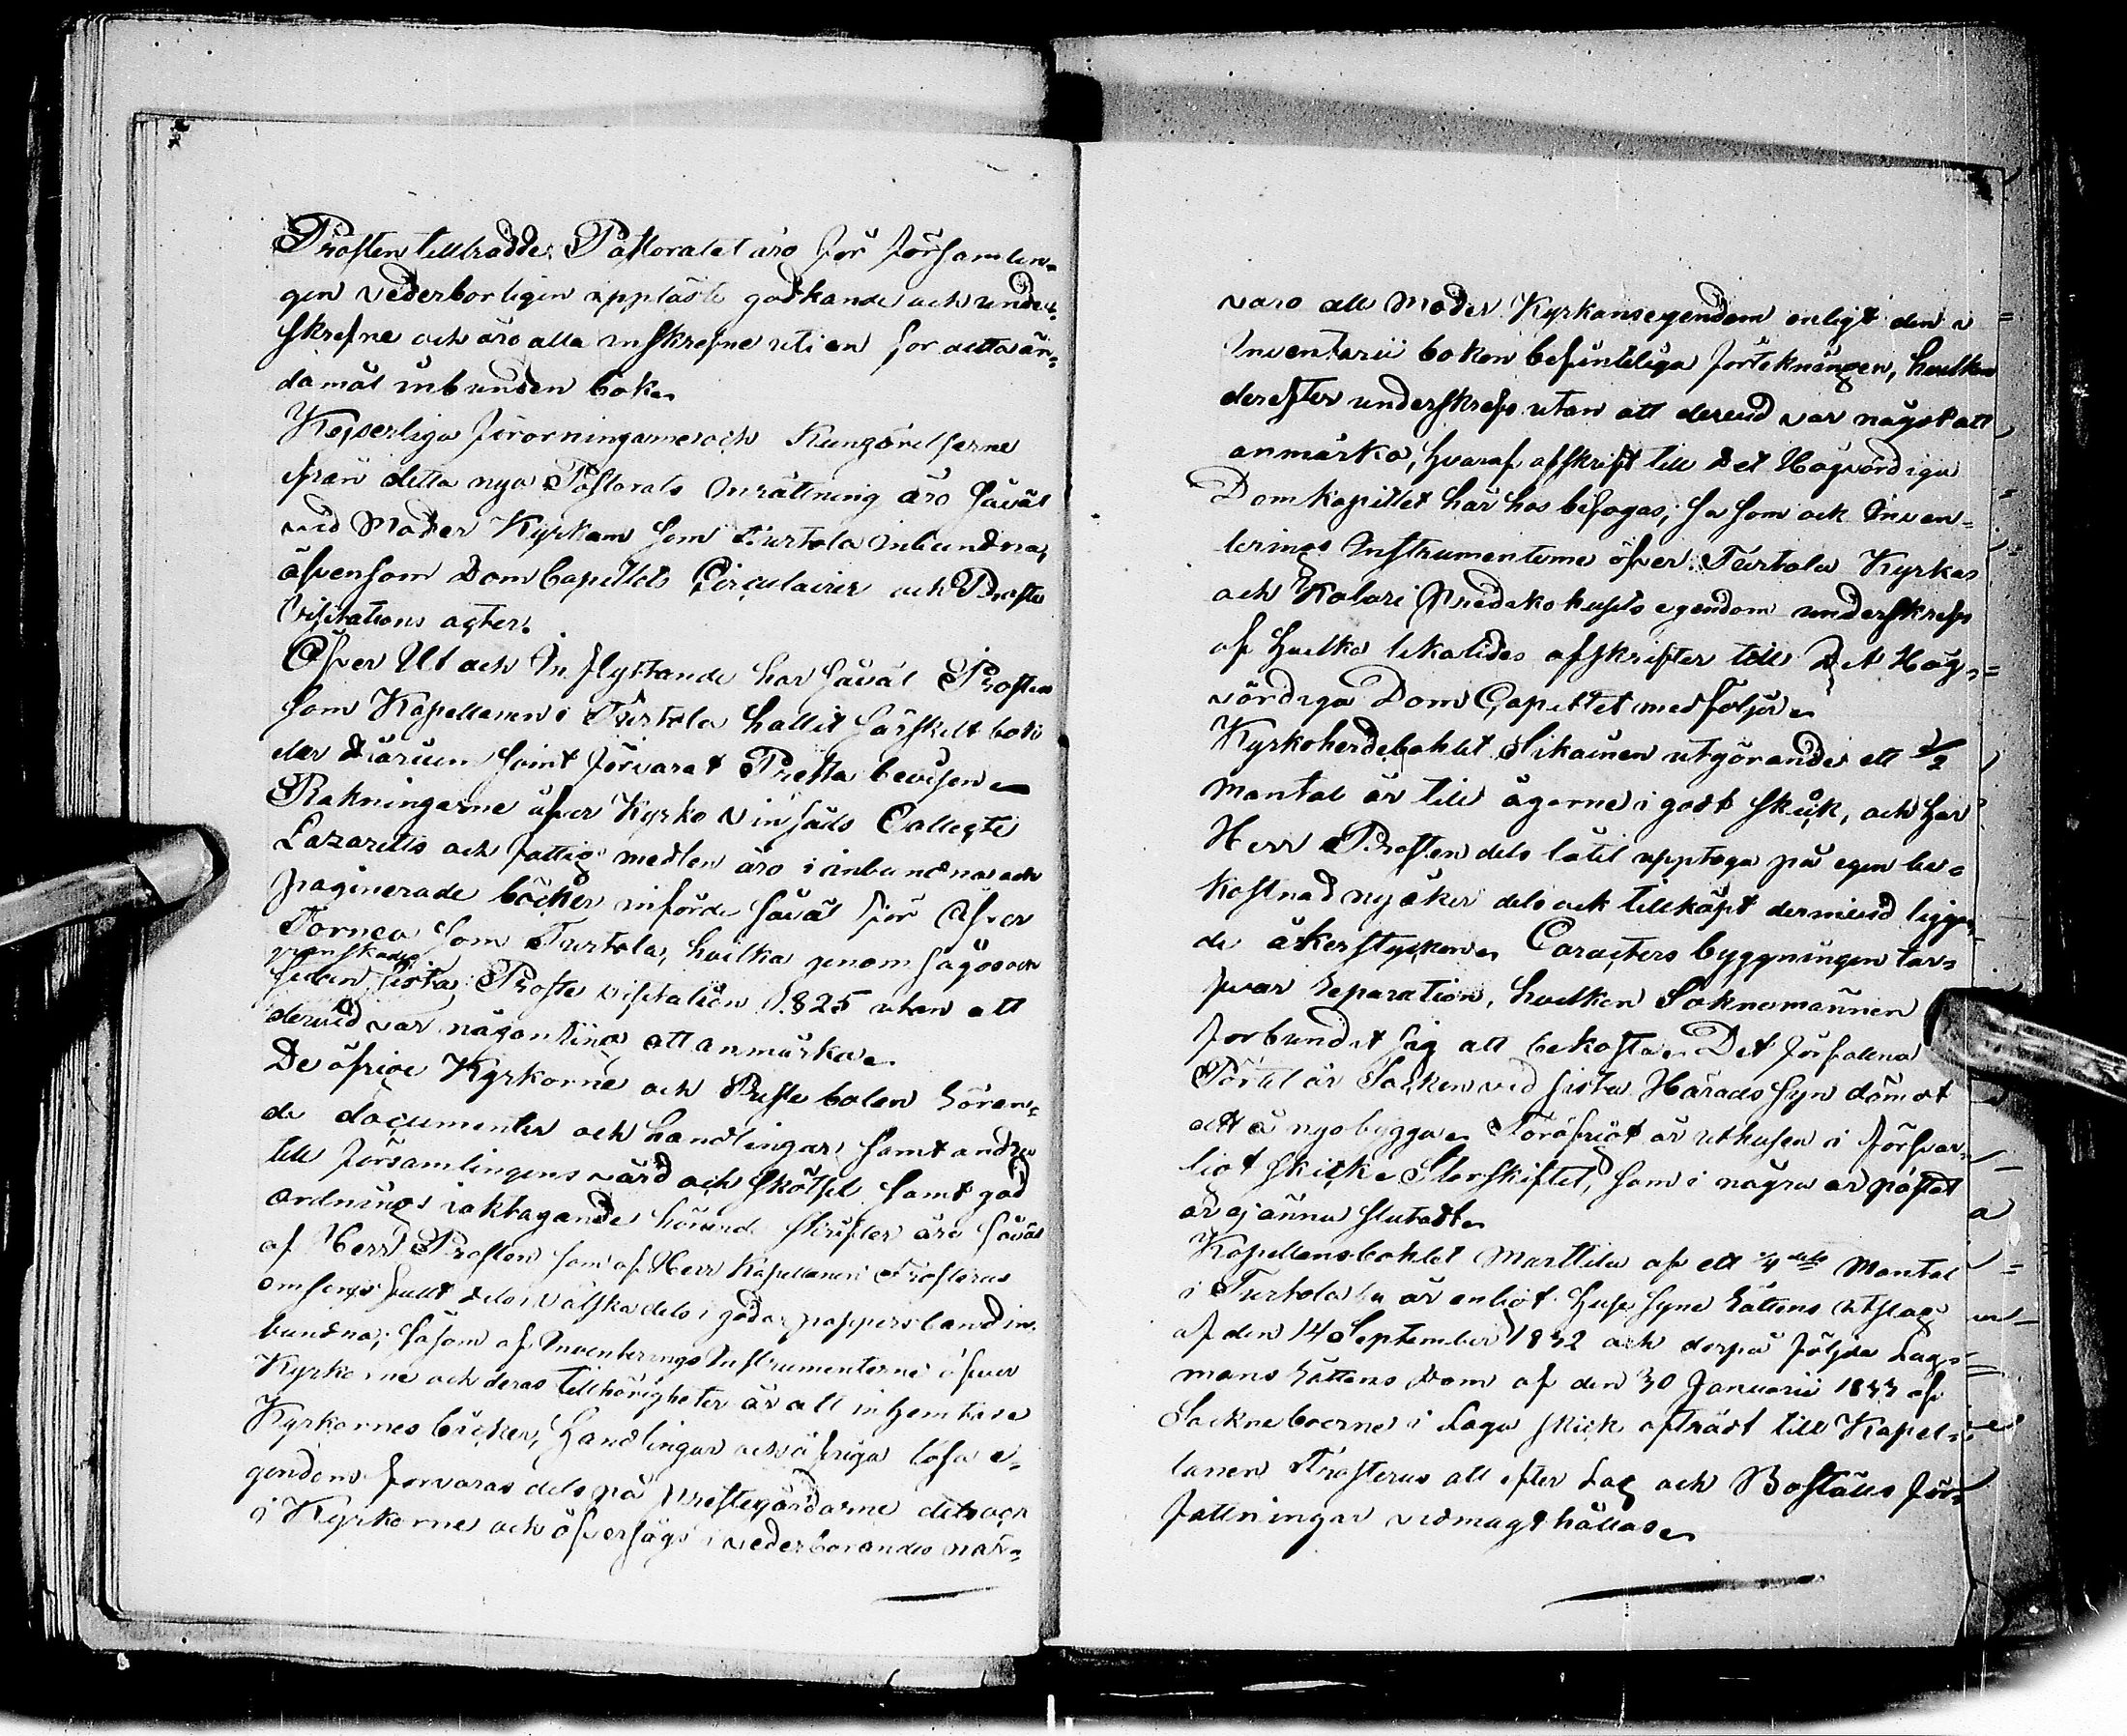 Prosten tillträdde Pastoratet äro för församlin=
gen vederborligen uppläste godkände och under=
skrefne och äro alla inskrefne uti en for detta än=
damål inbunden bok.
Kejserliga förorningarne och Kungörelserne
från detta nya Pastorats Inrättning äro såväl
vid Moder Kyrkan som Turtola inbundna,
äfvensom Dom Capitlets Circulairer och Proste
Visitations acter.
Öfver Ut och In flyttande har såväl Prosten
som Kapellanen i Turtola hallit särskilt bok
eller Diarium samt förvarat Presta bevisen
Räkningarne öfver Kyrko Vin säds Collegte
Lazaretts och fattig medlen äro i inbundna och
paginerade böcker införde såväl för Öfver
Tornea som Turtola, hvilka genomsågos och
granskades
sedan sista Proste visitation 1825 utan att
dervid var någonting att anmärka.
De öfrige Kyrkorne och Preste bolen rören=
de documenter och handlingar samt andre
till församlingens vård och skötsel samt god
ordnings iaktagande hörande skrifter äro såväl
af Herr Prosten som af Herr Kapellanen Frosterus
omsorgsfullt dels i välska dels i goda pappersband in
bundna; såsom af Inventerings Instrumenterne öfver
Kyrkorne och deras tillhörigheter är att inhemta
Kyrkornes böcker, Handlingar och öfriga lösa e=
gendom forvaras dels på prestegårdarne dels och
i Kyrkorne och öfversågs i vederborandes när=
varo all Moder Kyrkans egendom enligt den i
Inventarii boken befinteliga förtekningen, hvilken
derefter underskrefs utan att dervid var något att
anmärka, hvaraf afskrift till Det Högvördiga
Domkapitlet här hos befogas; så som ock Inven=
terings Instrumenterne öfver Turtola Kyrkas
och Kolari Predikohusets egendom underskrefs
af hvilka likaledes afskrifter till Det Hög=
vördiga Dom Capitlet medföljer
Kyrkoherdebohlet Sikainen utgörande ett 1/2
Mantal är till ägorne i godt skick, och har
Herr Prosten dels låtit upptaga på egen be=
kostnad ny åker dels ock tillköpt dermed liggan
de åkerstycken. Caracters byggningen tar=
fvar reparation, hvilken Soknemännen
forbundit sig att bekosta. Det förfallna
Pörtet är Socken vid sista Härads syn dömt
att å nyo bygga. Foröfrigt är uthusen i försvar=
ligt skick. Storskiftet, som i några år påstått
är ej ännu slutadt.
Kapellansbohlet Marttila af ett 1/4 dels Mantal
i Turtola by är enligt Huse Syns Rättens Utslag
af den 14 September 1832 och derpå följde Lag=
mans Rättens Dom af den 30 Januarii 1833 af
Sockneboerne i Laga skick afträdt till Kapel=
lanen Frosterus att efter Lag och Boställs för=
fattningar vidmagthållas